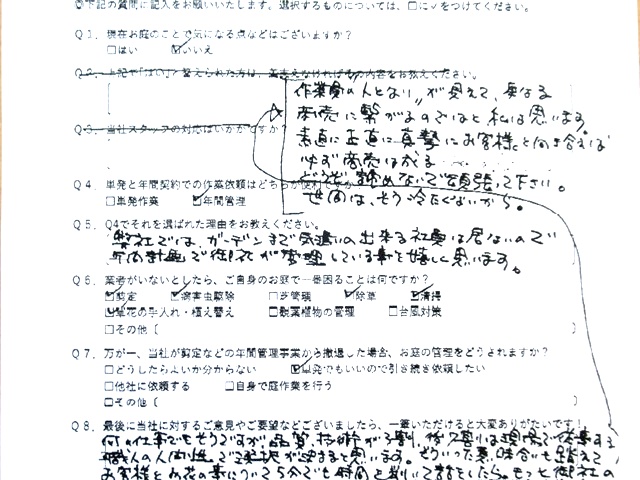 下記の質問に記入をお願いいたします。選択するものについては、□に✓をつけてください。
Q1. 現在お庭のことで気になる点などはございますか?
□はい ☑いいえ
Q2. 上記で「はい」と答えられた方は、差支えなければその内容をお教えください。
作業員の人となり〃が見えて、更なる
商売に繋がるのではと私は思います。
Q3. 当社スタッフの対応はいかがですか?
素直に正直に真摯にお客様と向き合えば
必ず商売は成る
どうぞ諦めないで頑張って下さい。
Q4. 単発と年間契約での作業依頼はどちらが便利ですか
世間は、そう冷たくないから。
□単発作業 ☑年間管理
Q5. Q4でそれを選ばれた理由をお教えください。
弊社では、ガーデンまで気遣いの出来る社員は居ないので
年間計画で御社が管理している事を嬉しく思います。
Q6. 業者がいないとしたら、ご自身のお庭で一番困ることは何ですか?
☑剪定 ☑病害虫駆除 □芝管理 ☑除草 ☑清掃
☑草花の手入れ・植え替え □観葉植物の管理 □台風対策
□その他(
Q7. 万が一、当社が剪定などの年間管理事業から撤退した場合、お庭の管理をどうされますか?
□どうしたらよいか分からない ☑単発でもいいので引き続き依頼したい
□他社に依頼する □自身で庭作業を行う
□その他(
Q8. 最後に当社に対するご意見やご要望などございましたら、一筆いただけると大変ありがたいです!
何の仕事でもそうですが品質、技術が 割、残 割は現場で作業する
職人の人間性で選択が決まると思います。そういった意味合いも踏まえて
お客様とお花の事について5分でも時間を割いて話をしたら。もっと御社の